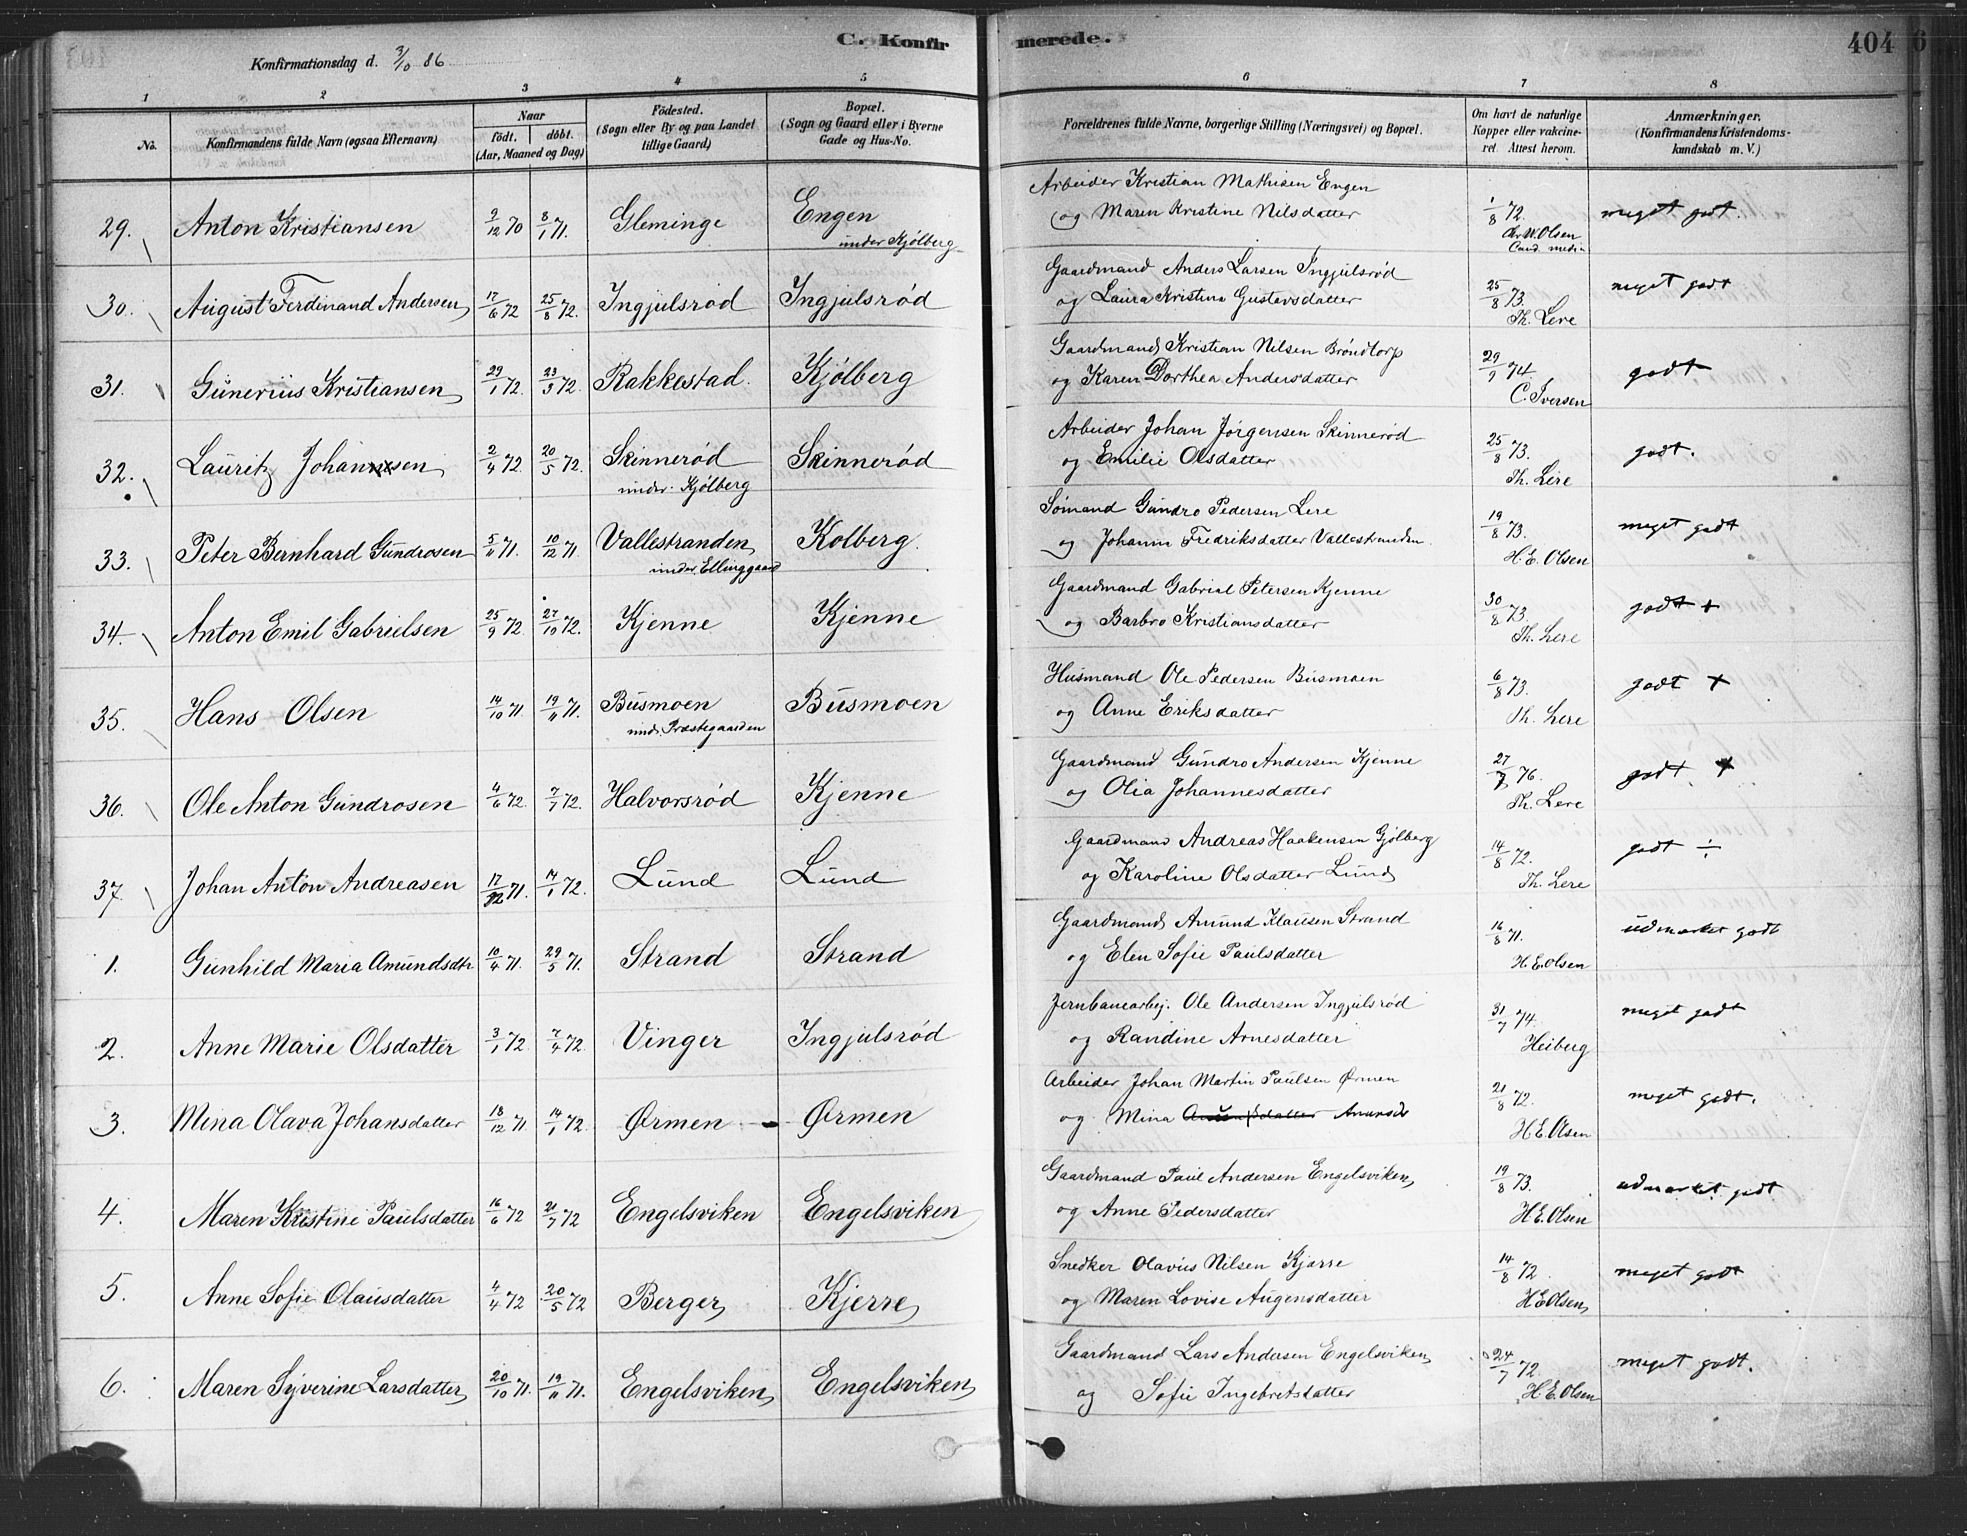 C. Konfirmerede.
404
6
Konfirmationsdag d. 3/10 86
1 2 3 4 5 6 7 8
No.
Konfirmandens fulde Navn (ogsaa Efternavn)
Naar
født. døbt.
(Aar, Maaned og Dag)
Fødested.
(Sogn eller By og paa Landet
tillige Gaard)
Bopæl.
(Sogn og Gaard eller i Byerne
Gade og Hus-No.
Forældrenes fulde Navne, borgerlige Stilling (Næringsvei) og Bopæl.
Om havt de naturlige
Kopper eller vakcine-
ret. Attest herom.
Anmærkninger.
(Konfirmandens Kristendoms-
kundskab m. V.)
29. Anton Kristiansen 9/12 70 8/1 71. Gleminge Engen
under Kjølberg
Arbeider Kristian Mathisen Engen
og Maren Kristine Nilsdatter
1/8 72. meget godt.
Chr W. Olsen
Cand. medi
30. August Ferdinand Andersen 17/6 72 25/8 72. Ingjulsrød Ingjulsrød
Gaardmand Anders Larsen Ingjulsrød
og Laura Kristina Gustavsdatter
25/8 73. meget godt
Th. Lere
31. Gunerius Kristiansen 29/1 72. 23/3 72. Rakkestad. Kjølberg
Gaardmand Kristian Nilsen Brøndtorp
og Karen Dorthea Andersdatter
29/9 74. godt
C. Iversen
32. Lauritz Johannsen 2/4 72. 20/5 72. Skinnerød Skinnerød
under Kjølberg
Arbeider Johan Jørgensen Skinnerød
og Emilie Olsdatter
25/8 73. godt.
Th. Lere
33. Peter Bernhard Gundrosen 71. 10/12 71. Vallestranden Kolberg.
under Ellinggaard
Sømand Gundro Pedersen Lere
og Johanne Fredriksdatter Vallestranden.
19/8 73. meget godt
H. E. Olsen
34. Anton Emil Gabrielsen 25/9 72. 27/10 72. Kjenne Kjenne
Gaardmand Gabriel Petersen Kjenne
og Barbro Kristiansdatter
30/8 73. godt +
Th. Lere
35. Hans Olsen 14/10 71. 19/11 71. Busmoen Busmoen
und. Præstegaarden
Husmand Ole Pedersen Busmoen
og Anne Eriksdatter
6/8 73. godt +
Th. Lere
36. Ole Anton Gundrosen 4/6 72. 7/7 72. Halvorsrød Kjenne
Gaardmand Gundro Andersen Kjenne
og Olia Johannesdatter
27/7 76. godt. +
Th. Lere
37. Johan Anton Andreasen 17/12 71. 14/1 72. Lund Lund
Gaardmand Andreas Haakensen Gjølberg
og Karoline Olsdatter Lund
14/8 72. godt ÷
Th. Lere
1. Gunhild Maria Amundsdtr 10/4 71. 29/5 71. Strand Strand
Gaardmand Amund Klausen Strand
og Elen Sofie Paulsdatter
16/8 71. udmærket godt
H. E. Olsen
2. Anne Marie Olsdatter 3/1 72. 7/4 72. Vinger Ingjulsrød
Jernbanearbej. Ole Andersen Ingjulsrød
og Randine Arnesdatter
31/7 74. meget godt
Heiberg
3. Mina Olava Johansdatter 18/12 71. 14/1 72. Ørmen - Ørmen
Arbeider Johan Martin Paulsen Ørmen
og Mina
21/8 72. meget godt.
H. E. Olsen
4. Maren Kristine Paulsdatter 16/6 72 21/7 72 Engelsviken Engelsviken
Gaardmand Paul Andersen Engelsviken
og Anne Pedersdatter
19/8 73. udmærket godt
H. E. Olsen
5. Anne Sofie Olausdatter 4/4 72 20/5 72 Berger Kjerre
Snedker Olavus Nilsen Kjærre
og Maren Lovise Augensdatter
14/8 72. meget godt
H. E. Olsen
6. Maren Syverine Larsdatter 20/10 71. 19/11 71. Engelsviken Engelsviken
Gaardmand Lars Andersen Engelsviken
og Sofie Ingebretsdatter
24/7 72. meget godt.
H. E. Olsen